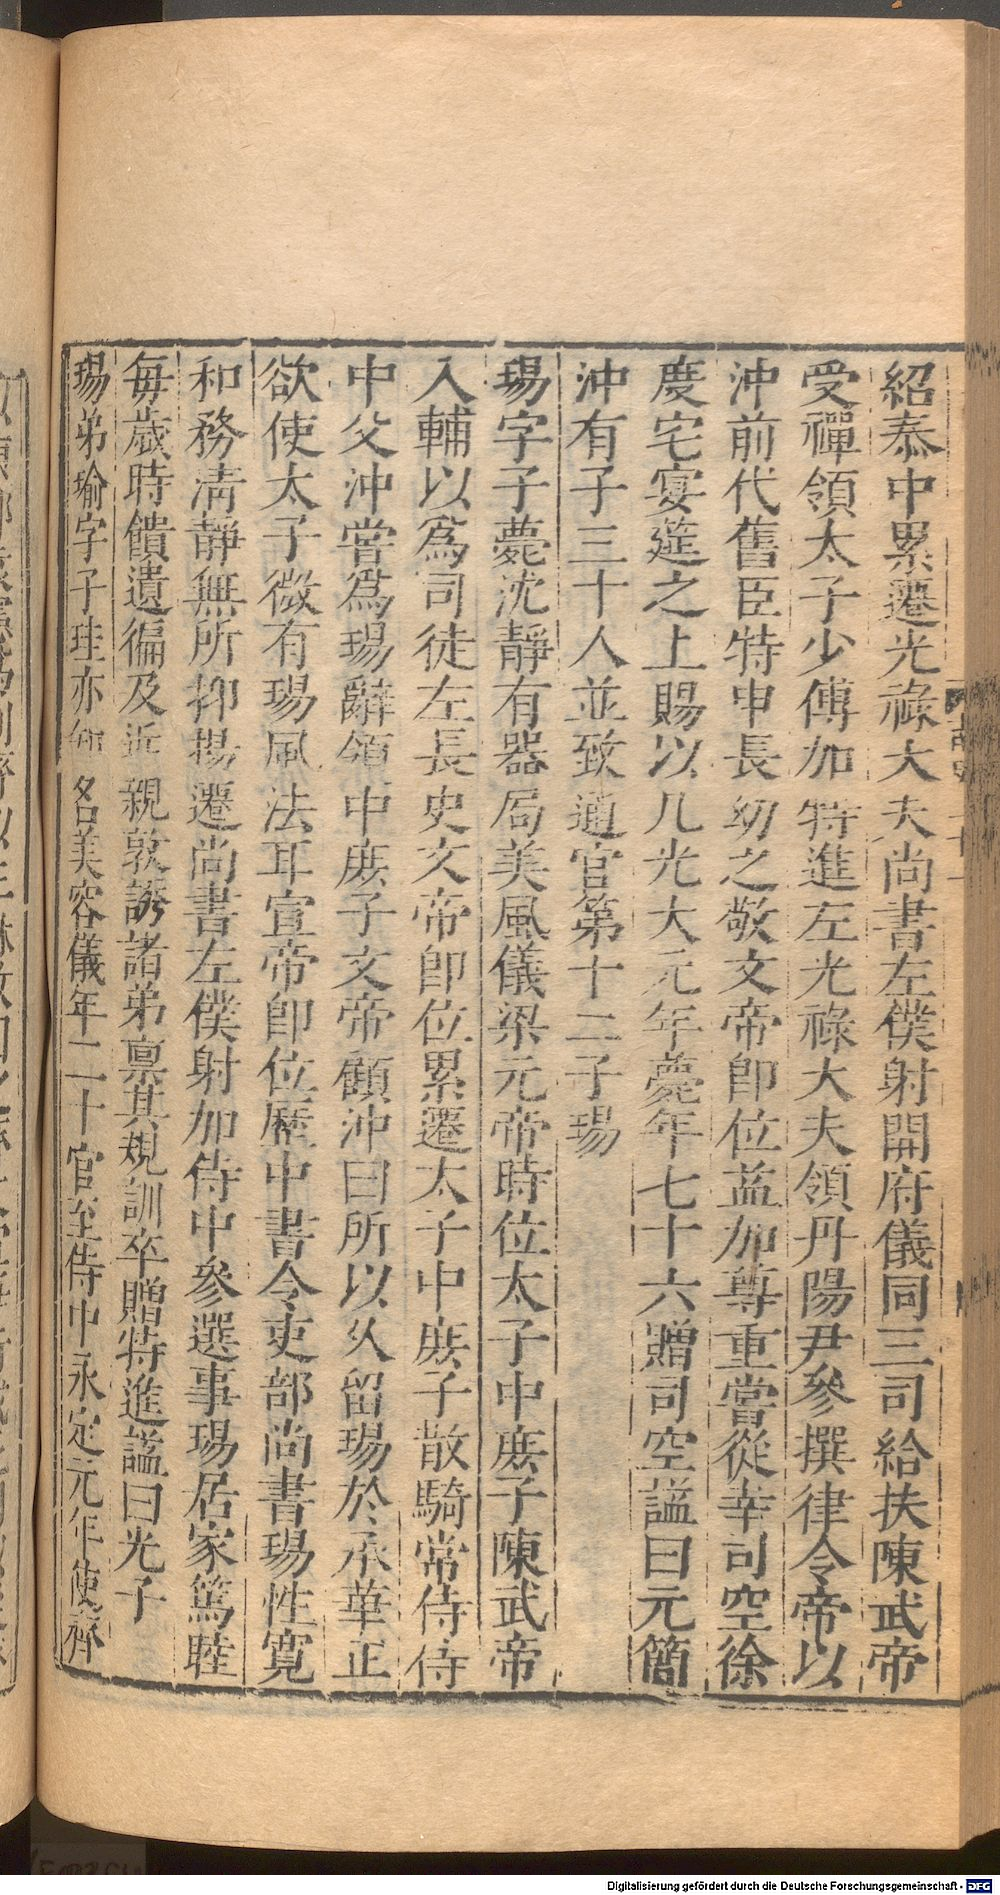 紹泰中累遷光祿大夫尚書左僕射開府儀同三司給扶陳武帝
受禪領太子少傅加特進左光祿大夫領丹陽尹參撰律令帝以
沖前代舊臣特申長幼之敬文帝卽位益加尊重嘗從幸司空徐
度宅宴筵之上賜以几光大元年薨年七十六贈司空諡曰元簡
沖有子三十人並致通官第十二子瑒
瑒字子薨沈靜有器局美風儀梁元帝時位太子中庶子陳武帝
入輔以爲司徒左長史文帝卽位累遷太子中庶子散騎常侍侍
中父沖嘗爲瑒辭領中庶子文帝顧沖曰所以久留瑒於承華正
欲使太子微有瑒風法耳宣帝卽位歷中書令吏部尚書瑒性寬
和務淸靜無所抑揚遷尚書左僕射加侍中參選事瑒居家篤睦
毎歲時饋遺徧及近親敦誘諸弟稟其規訓卒贈特進諡曰光子
瑒弟瑜字子珪亦知名美容儀年二十官至侍中永定元年使齊
Digitalisierung gefördert durch die Deutsche Forschungsgemeinschaft - DFG